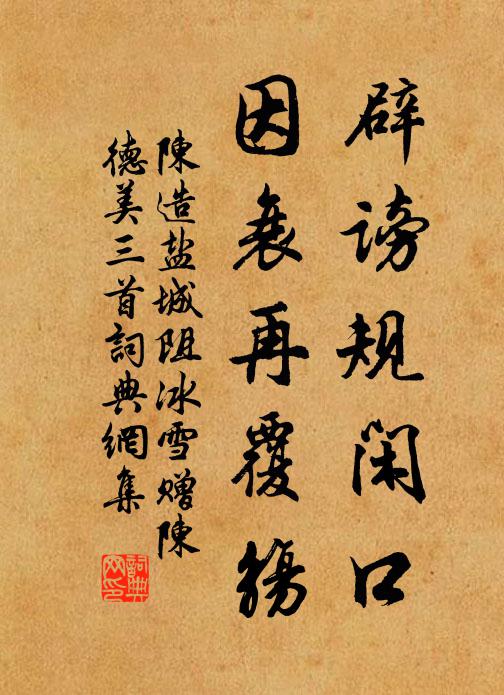 辟謗規閑口
因衰再覆觴
陳造盐城阻冰雪贈陳
德美三首詞典網集
詞典
网印